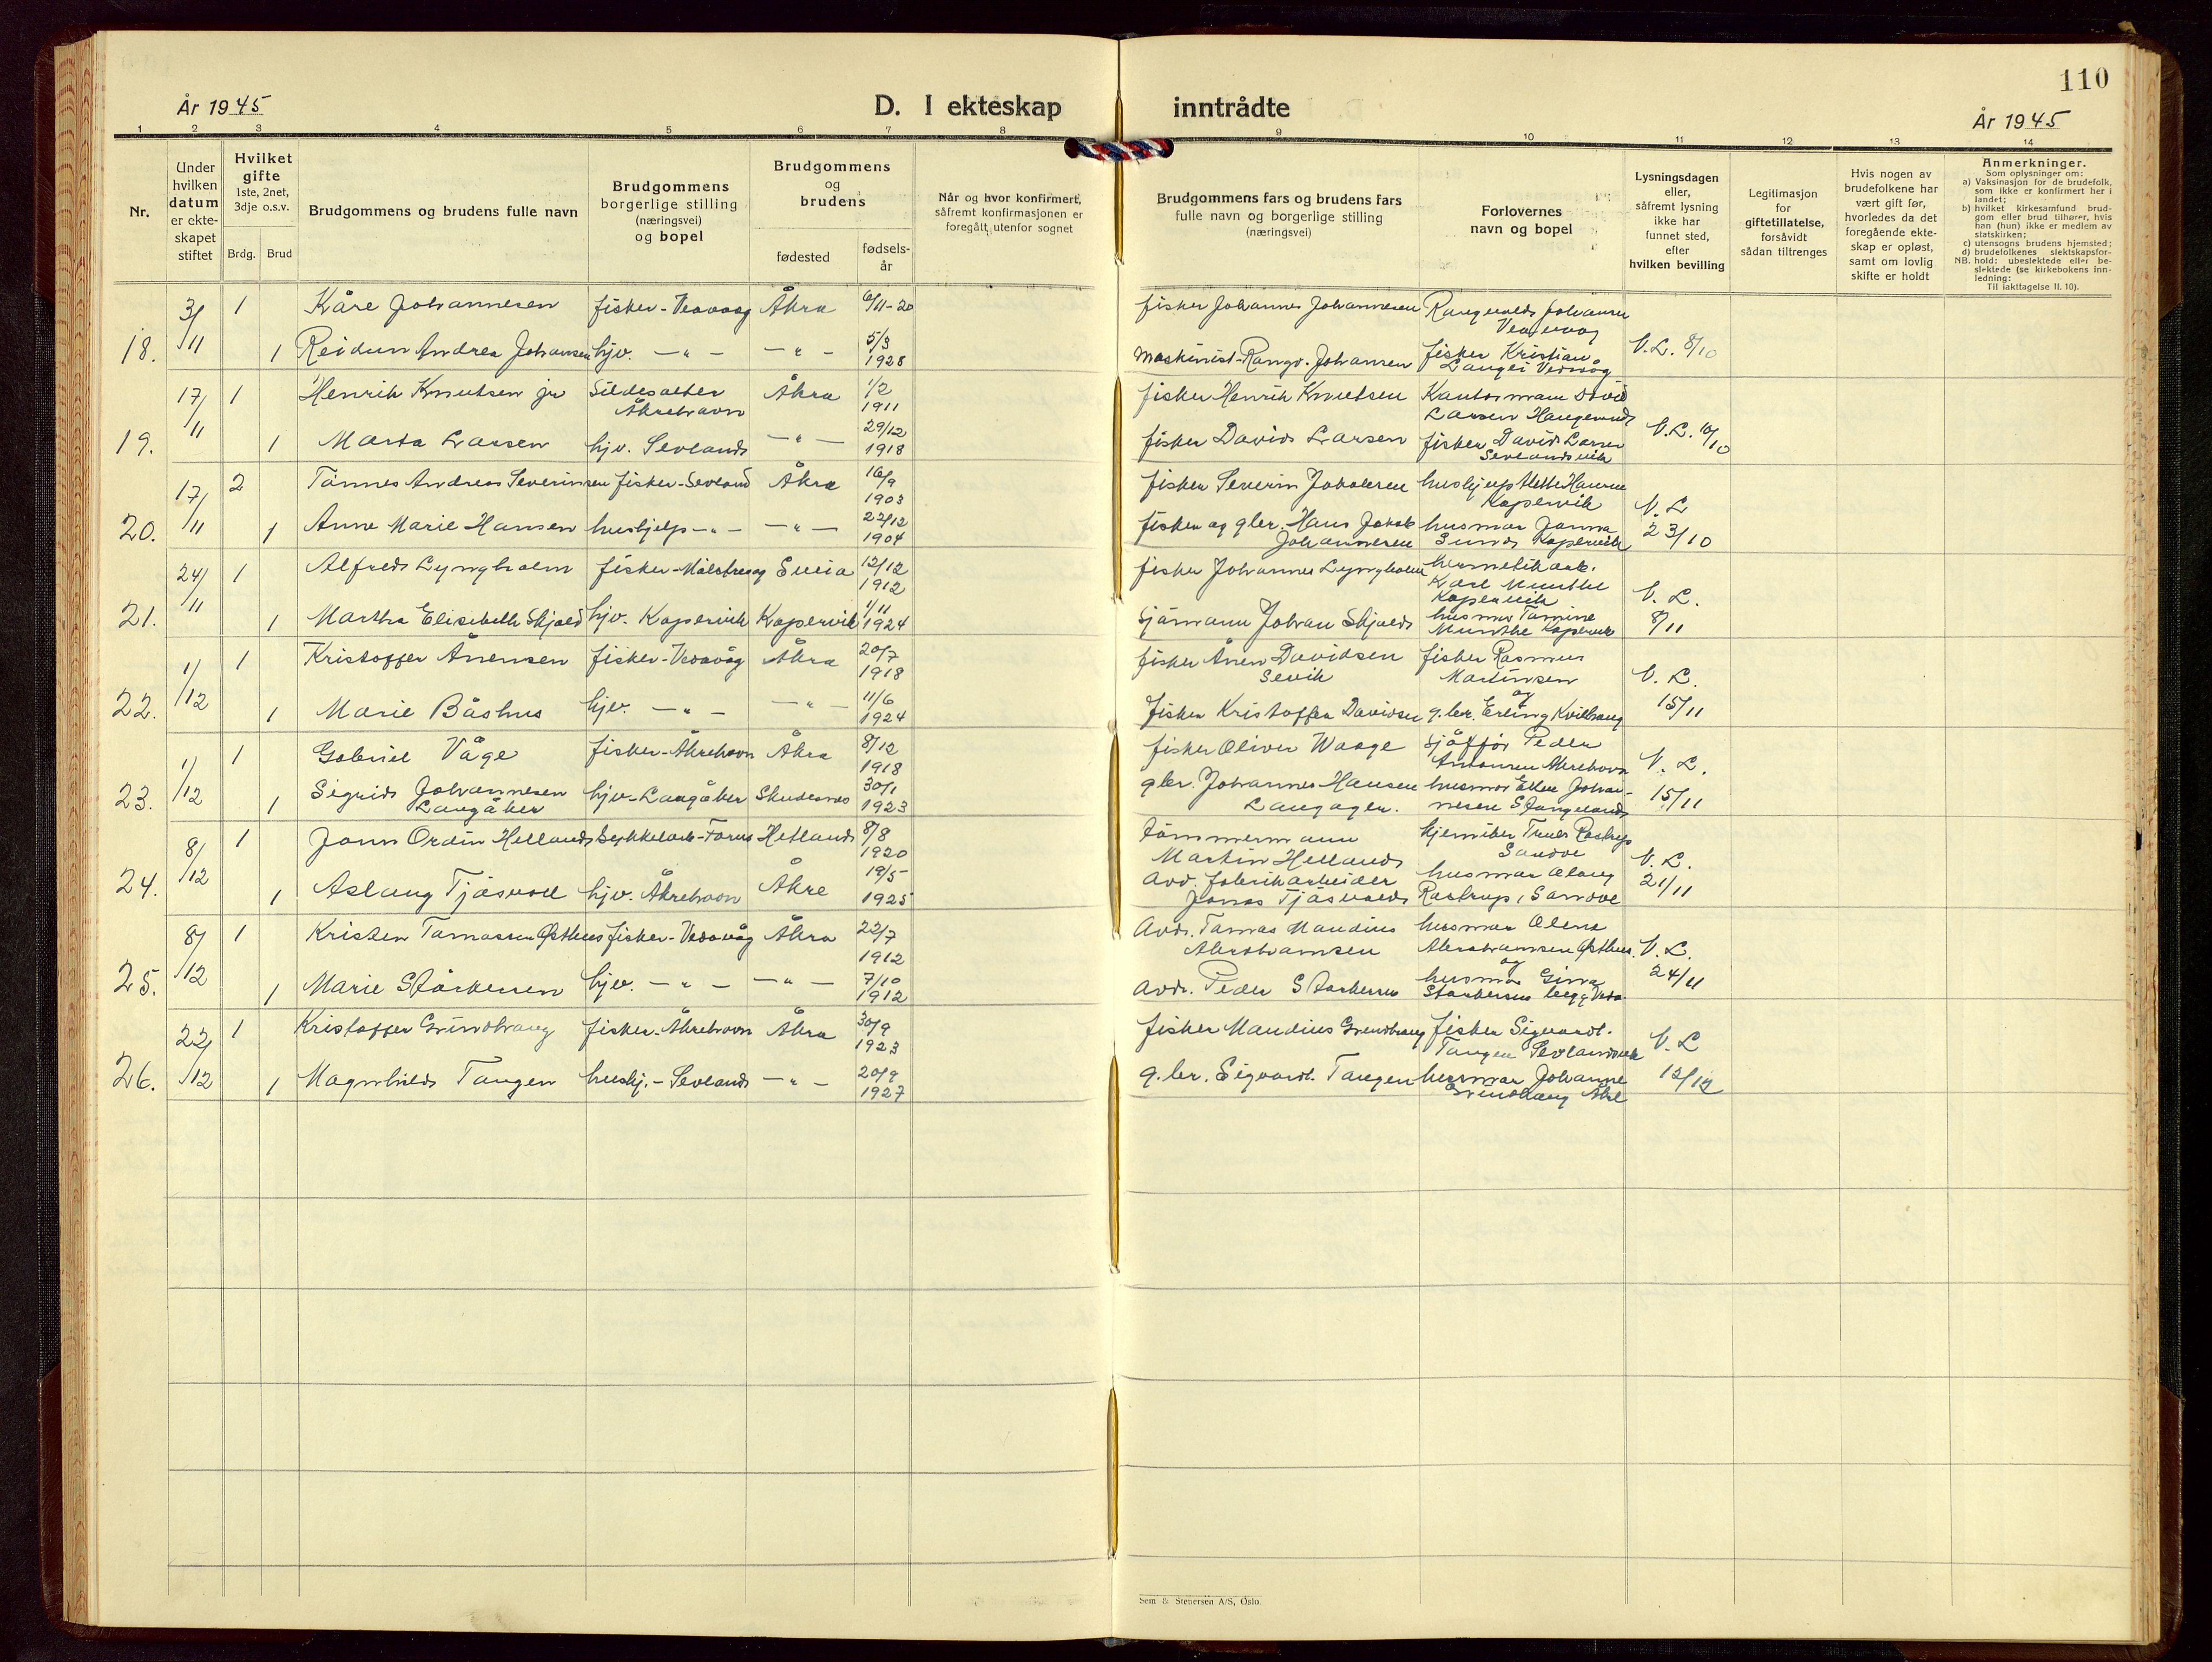 110
År 1945
D. I ekteskap inntrådte
År 1945
1 2 3 4 5 6 7 8 9 10 11 12 13 14
Nr.
Under
hvilken
datum
er ekte-
skapet
stiftet
Hvilket
gifte
1ste, 2net,
3dje o.s.v.
Brdg. Brud
Brudgommens og brudens fulle navn
Brudgommens
borgerlige stilling
(næringsvei)
og bopel
Brudgommens
og
brudens
fødested
fødsels-
år
Når og hvor konfirmert,
såfremt konfirmasjonen er
foregått utenfor sognet
Brudgommens fars og brudens fars
fulle navn og borgerlige stilling
(næringsvei)
Forlovernes
navn og bopel
Lysningsdagen
eller,
såfremt lysning
ikke har
funnet sted,
efter
hvilken bevilling
Legitimasjon
for
giftetillatelse,
forsåvidt
sådan tiltrenges
Hvis nogen av
brudefolkene har
vært gift før,
hvorledes da det
foregående ekte-
skap er opløst,
samt om lovlig
skifte er holdt
Anmerkninger.
Som oplysninger om:
a) Vaksinasjon for de brudefolk,
som ikke er konfirmert her i
landet;
b) hvilket kirkesamfund brud-
gom eller brud tilhører, hvis
han (hun) ikke er medlem av
statskirken;
c) utensogns brudens hjemsted;
d) brudefolkenes slektskapsfor-
NB. hold: ubeslektede eller be-
slektede (se kirkebokens inn-
ledning:
Til iakttagelse II. 10).
18. 3/11 1 Kåre Johannesen fisker - Veavaag Åkra 6/11-20 fisker Johannes Johannesen Rangvald Johansen
Veavaag
1 Reidun Andrea Johansen hjv. — " — — " — 5/3 1928 maskinist Rangv. Johansen fisker Kristian
Veavåg V.L. 8/10
19. 17/11 1 Henrik Knutsen jr Sildesalter
Åkrehavn Åkra 1/2 1911 fisker Henrik Knutsen Kantormann David
Larsen Haugesund
1 Marta Larsen hjv. Sevland — " — 29/12 1918 fisker David Larsen fisker David Larsen
Sevlandsvik V.L. 10/10
20. 17/11 2 Tønnes Andreas Severinsen fisker - Sevland Åkra 16/9 1903 fisker Severin Jakobsen hushjelp Hansen
Kopervik V.L
1 Anne Marie Hansen hushjelp — " — — " — 22/12 1904 fisker og gbr. Hans Jakob
Johannesen husmor Jonna
Sund Kopervik 23/10
21. 24/11 1 Alfred Lyngholm fisker - Målstrevåg Sveio 12/12 1912 fisker Johannes Lyngholm hermetikarb.
Karl Munthe
Kopervik V. L.
1 Martha Elisabeth Skjold hjv. Kopervik Kopervik 1/11 1924 sjømann Johan Skjold husmor Tomine
Munthe Kopervik 8/11
22. 1/12 1 Kristoffer Ånensen fisker - Vedavåg Åkra 20/7 1918 fisker Ånen Davidsen
Sevik fisker Rasmus
Martinsen V. L.
og
1 Marie Båshus hjv. — " — — " — 11/6 1924 fisker Kristoffer Davidsen g.br. Erling Kvilhaug 15/11
23. 1/12 1 Gabriel Våge fisker - Åkrehavn Åkra 8/12 1918 fisker Oliver Waage sjåffør Peder
Antonsen Åkrehavn V. L.
1 Sigrid Johannesen
Langåker hjv - Langåker Skudesnes 30/1 1923 gbr. Johannes Hansen
Langåger. husmor Ellen Johan-
nesen Stangeland 15/11
24. 8/12 1 Jonn Ordin Helland sykkelarb - Forus Hetland 8/8 1920 tømmermann
Martin Helland Rastrup
Sandve V. L.
1 Aslaug Tjøsvoll hjv. Åkrehavn Åkre 19/5 1925 avd. fabrikarbeider
Jonas Tjøsvold husmor
Rastrup, Sandve 21/11
25. 8/12 1 Kristen Tomassen Østhus fisker - Vedavåg Åkra 22/7 1912 Avd. Tomas Mandius
Abrahamsen husmor Olena
Abrahamsen Østhus V. L.
og
1 Marie Størkersen hjv. — " — — " — 7/10 1912 avd. Peder Størkersen husmor Gina
Størkersen 24/11
26. 22/12 1 Kristoffer Grindhaug fisker - Åkrehavn Åkra 30/9 1923 fisker Mandius Grindhaug fisker Sigvard
Tangen Sevlandsvik V. L
1 Magnhild Tangen hushj. - Sevland — " — 20/9 1927 g.br. Sigvard Tangen husmor Johanne
Grindhaug Åkre 12/12
Sem & Stenersen A/S, Oslo.